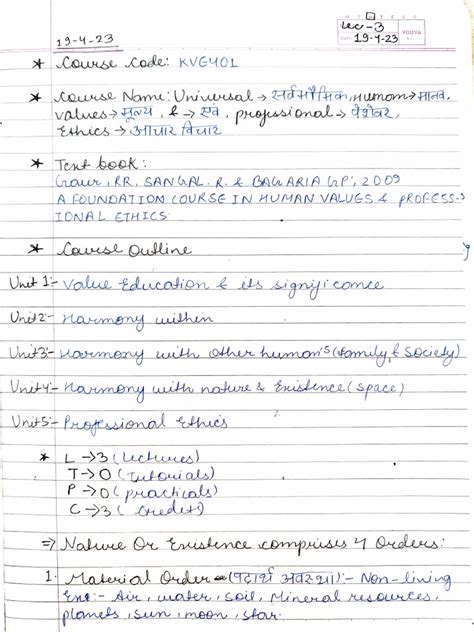 Lec-3
YOUVA
Date 19-4-23
19-4-23
* Course Code: KVE401
* Course Name: Universal → सर्वभौमिक, Human → मानव,
Values → मूल्य, & → एवं, professional → पेशेवर,
Ethics → आचार विचार
* Text book:
Gaur, RR. SANGAL. R. & BAGARIA GP; 2009
A FOUNDATION COURSE IN HUMAN VALUES & PROFESS-
IONAL ETHICS.
* Course Outline
Unit 1:- Value Education & its significance
Unit 2:- Harmony within
Unit 3:- Harmony with other human's (family & society)
Unit 4:- Harmony with nature & Existence (space)
Unit 5:- Professional Ethics
* L → 3 (lectures)
T → 0 (tutorials)
P → 0 (practicals)
C → 3 (credits)
⇒ Nature Or Existence comprises 4 Orders:
1. Material Order - (पदार्थ अवस्था):- Non-living
Ex:- Air, water, soil, Mineral resources,
planets, sun, moon, star.